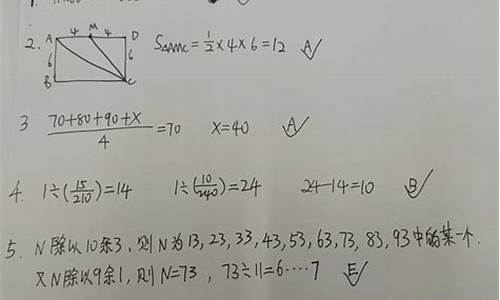 2. A 4 M 4 D S△AMC=½×4×6=12 A✓
6 6
B C
3 (70+80+90+X)/4=70 X=40 A✓
4. 1÷(15/210)=14 1÷(10/240)=24 24-14=10 B✓
5. N除以10余3,则N为13,23,33,43,53,63,73,83,93中的某一个.
又N除以9余1,则N=73,73÷11=6····7 E✓